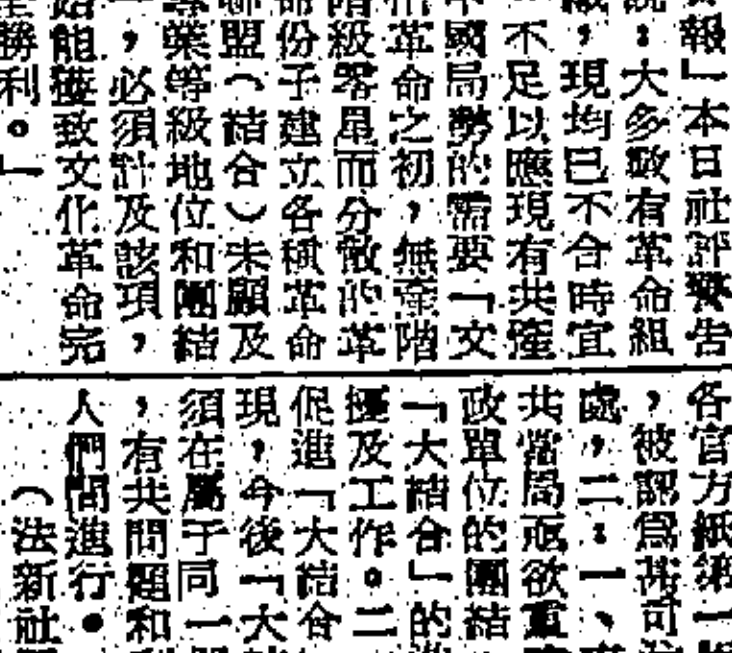 報﹂本日社評警告
說：大多數有革命組
織，現均已不合時宜
不足以應現有共產
國局勢的需要﹁文
化革命之初，無產階
階級零星而分散的革
命份子建立各種革命
聯盟（結合）未顧及
專業等級地位和團結
，必須計及該項，
始能獲致文化革命完
全勝利。﹂
各官方紙第一
，被認為其可
處，二：一、
共當局亟欲重
政單位的團結
﹁大結合﹂的
擾及工作。二
促進﹁大結合
現，今後﹁大
須在屬于同一
，有共同問題和
人們間進行。
（法新社